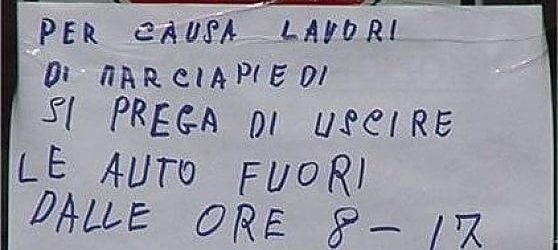 PER CAUSA LAVORI
DI MARCIAPIEDI
SI PREGA DI USCIRE
LE AUTO FUORI
DALLE ORE 8-17